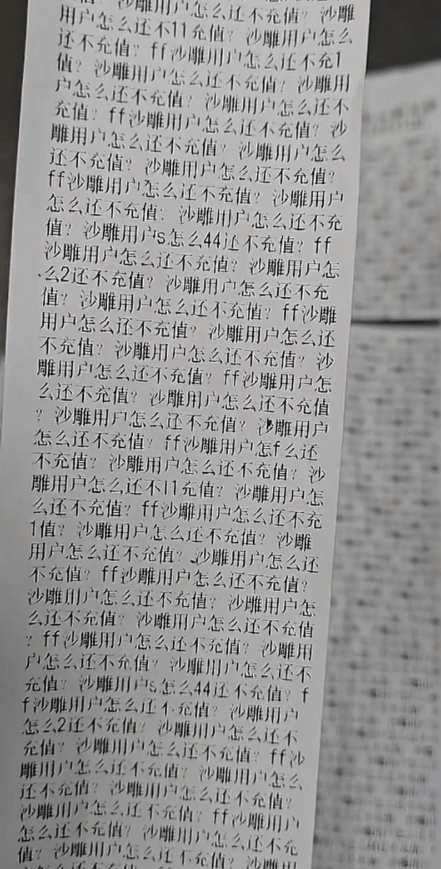 值? 沙雕用户怎么还不充值? 沙雕
用户怎么还不11充值? 沙雕用户怎么
还不充值? ff沙雕用户怎么还不充1
值? 沙雕用户怎么还不充值? 沙雕用
户怎么还不充值? 沙雕用户怎么还不
充值? ff沙雕用户怎么还不充值? 沙
雕用户怎么还不充值? 沙雕用户怎么
还不充值? 沙雕用户怎么还不充值?
ff沙雕用户怎么还不充值? 沙雕用户
怎么还不充值? 沙雕用户怎么还不充
值? 沙雕用户s怎么44还不充值? ff
沙雕用户怎么还不充值? 沙雕用户怎
么2还不充值? 沙雕用户怎么还不充
值? 沙雕用户怎么还不充值? ff沙雕
用户怎么还不充值? 沙雕用户怎么还
不充值? 沙雕用户怎么还不充值? 沙
雕用户怎么还不充值? ff沙雕用户怎
么还不充值? 沙雕用户怎么还不充值
? 沙雕用户怎么还不充值? 沙雕用户
怎么还不充值? ff沙雕用户怎f么还
不充值? 沙雕用户怎么还不充值? 沙
雕用户怎么还不11充值? 沙雕用户怎
么还不充值? ff沙雕用户怎么还不充
1值? 沙雕用户怎么还不充值? 沙雕
用户怎么还不充值? 沙雕用户怎么还
不充值? ff沙雕用户怎么还不充值?
沙雕用户怎么还不充值? 沙雕用户怎
么还不充值? 沙雕用户怎么还不充值
? ff沙雕用户怎么还不充值? 沙雕用
户怎么还不充值? 沙雕用户怎么还不
充值? 沙雕用户s怎么44还不充值? f
f沙雕用户怎么还不充值? 沙雕用户
怎么2还不充值? 沙雕用户怎么还不
充值? 沙雕用户怎么还不充值? ff沙
雕用户怎么还不充值? 沙雕用户怎么
还不充值? 沙雕用户怎么还不充值?
沙雕用户怎么还不充值? ff沙雕用户
怎么还不充值? 沙雕用户怎么还不充
值? 沙雕用户怎么还不充值? 沙雕用